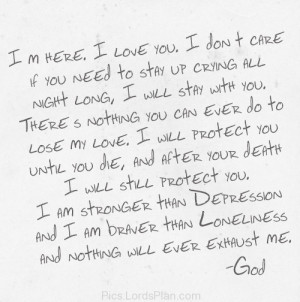 I m here. I love you. I don t care
if you need to stay up crying all
night long, I will stay with you.
There s nothing you can ever do to
lose my love. I will protect you
until you die, and after your death
I will still protect you.
I am stronger than Depression
and I am braver than Loneliness
and nothing will ever exhaust me.
-God
Pics.LordsPlan.com